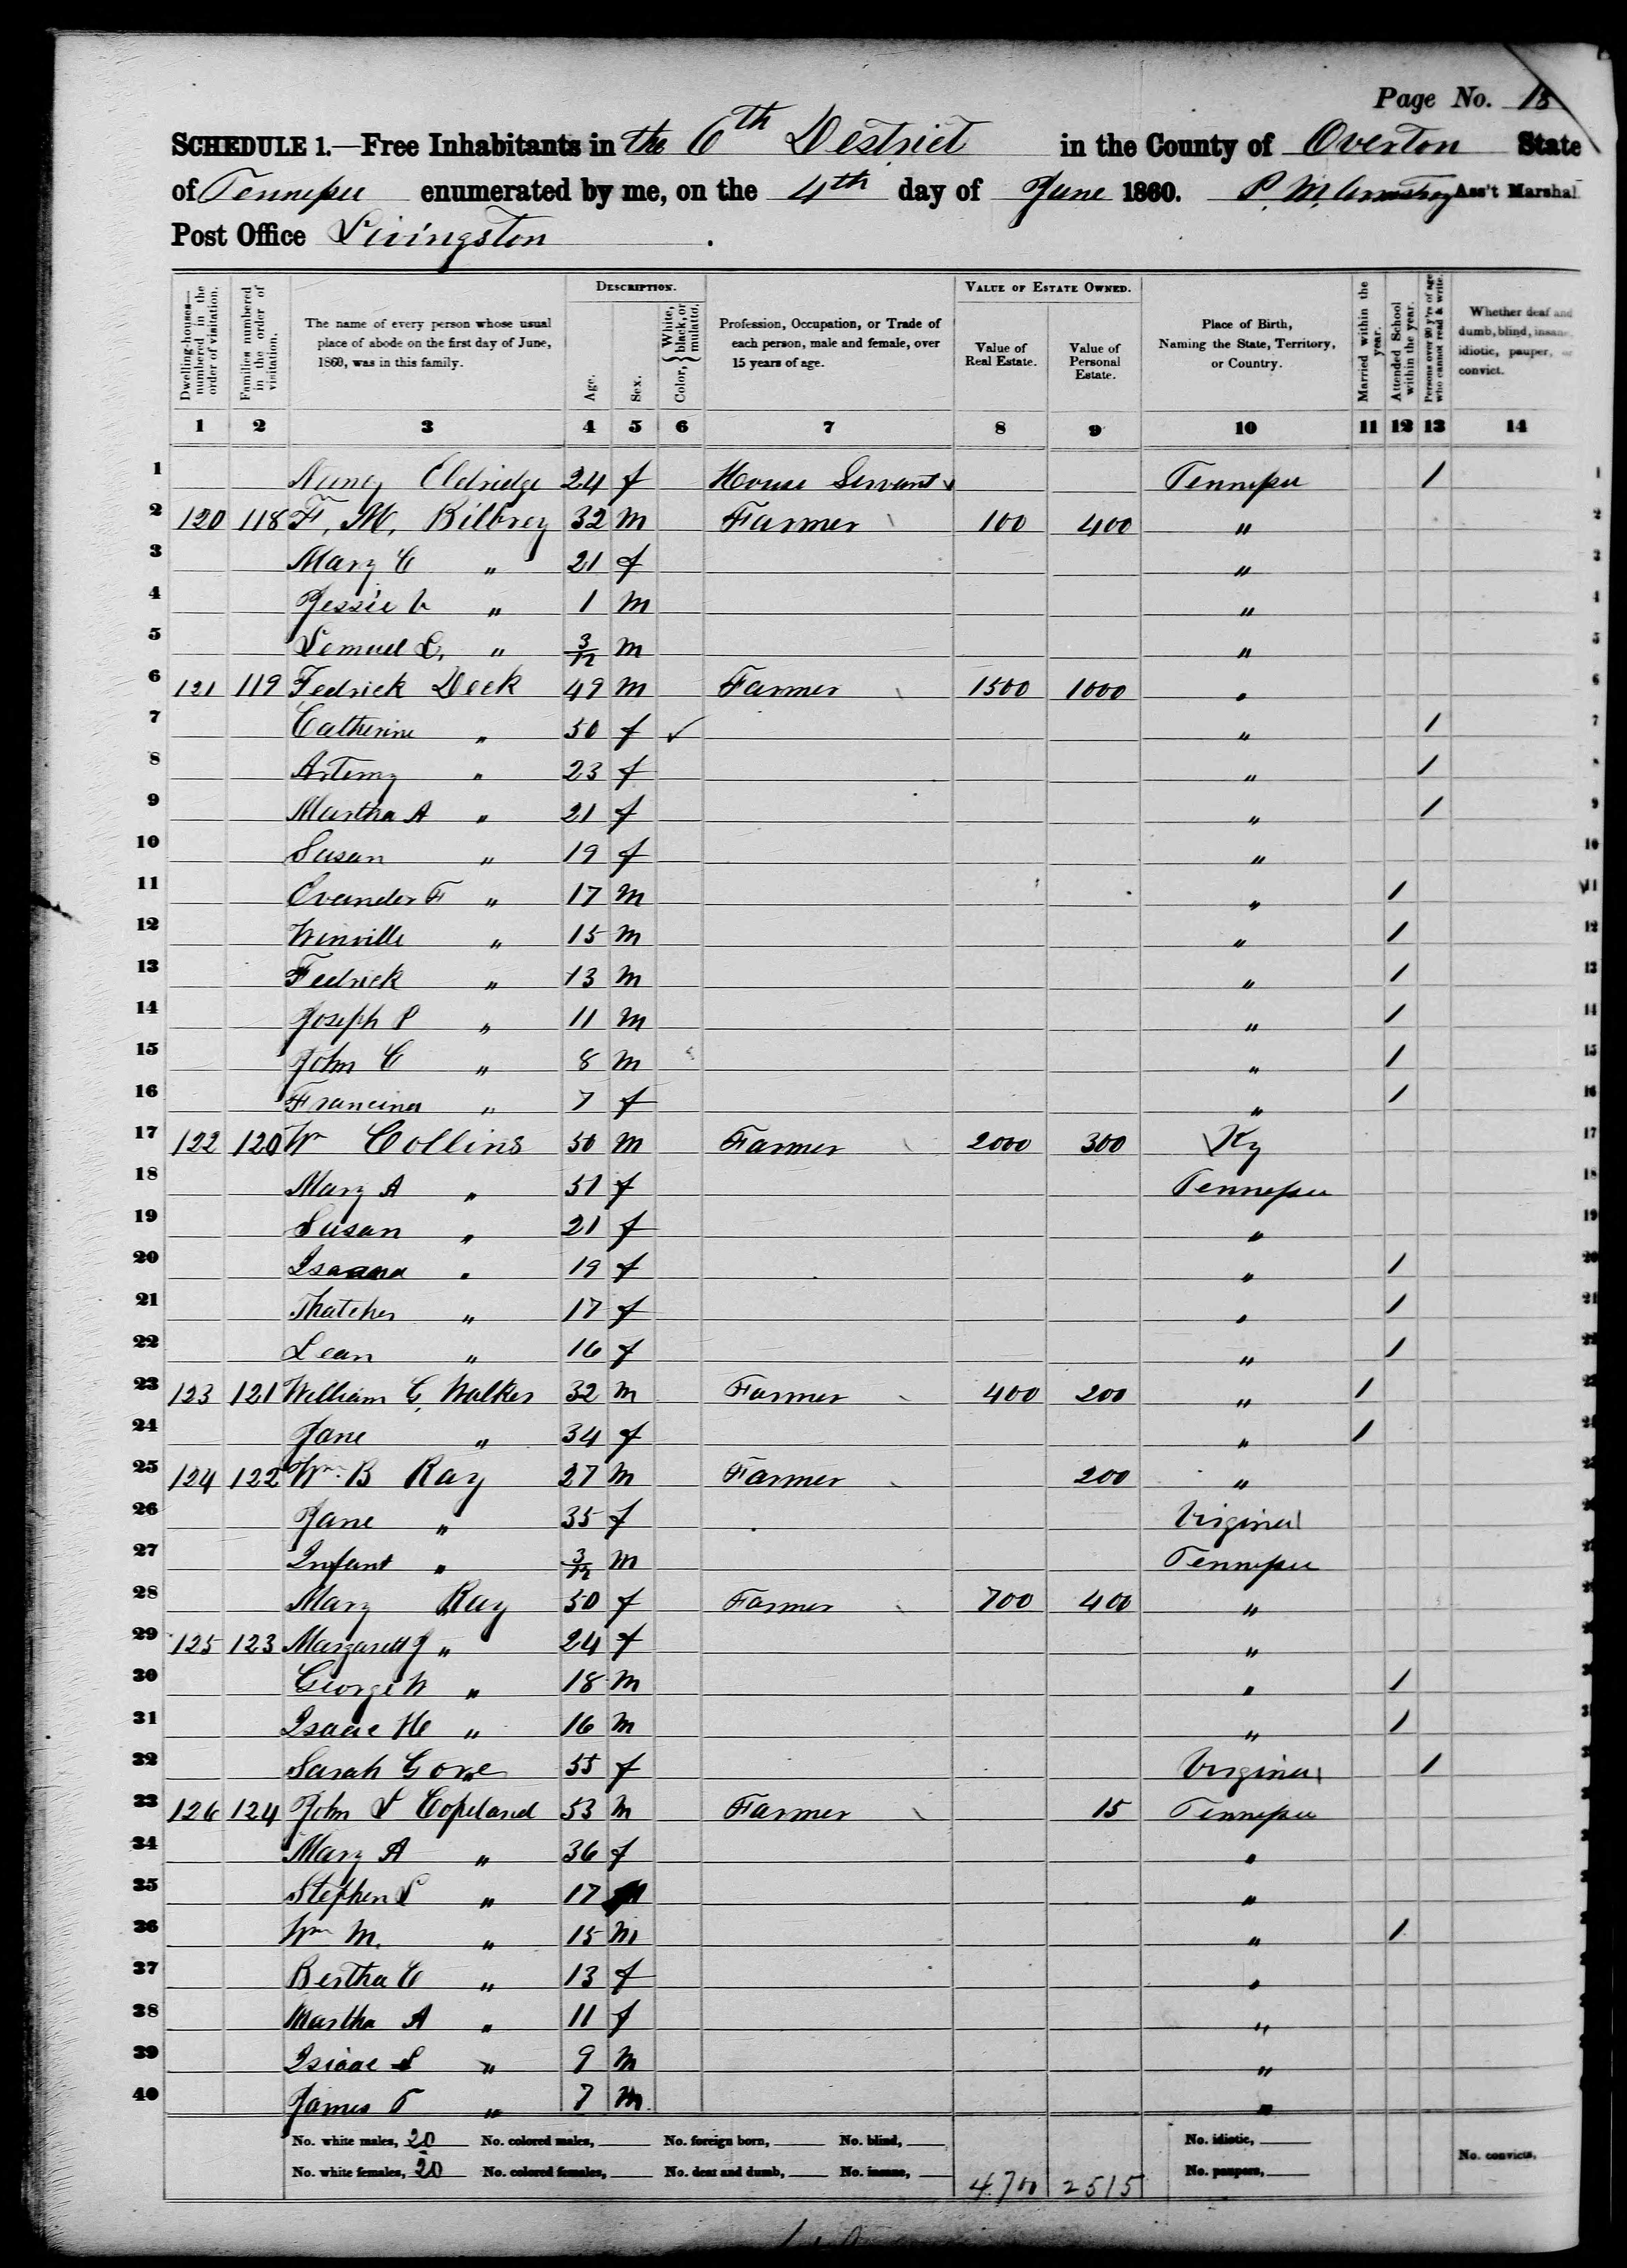 Page No. 18
SCHEDULE 1.—Free Inhabitants in the 6th Destrict in the County of Overton State
of Tennessee enumerated by me, on the 4th day of June 1860. P. M. Armstrong Ass't Marshal
Post Office Livingston .
Dwelling-houses—numbered in the order of visitation.
Families numbered in the order of visitation.
The name of every person whose usual place of abode on the first day of June, 1860, was in this family.
DESCRIPTION.
Age.
Sex.
Color, } White, black, or mulatto.
Profession, Occupation, or Trade of each person, male and female, over 15 years of age.
VALUE OF ESTATE OWNED.
Value of Real Estate.
Value of Personal Estate.
Place of Birth, Naming the State, Territory, or Country.
Married within the year.
Attended School within the year.
Persons over 20 y'rs of age who cannot read & write.
Whether deaf and dumb, blind, insane, idiotic, pauper, or convict.
1 2 3 4 5 6 7 8 9 10 11 12 13 14
1 Nancy Eldridge 24 f House Servant Tennessee / 1
2 120 118 F. M. Bilbrey 32 m Farmer 100 400 " 2
3 Mary C " 21 f " 3
4 Jessie " 1 m " 4
5 Lemuel L. " 3/12 m " 5
6 121 119 Fedrick Deck 49 m Farmer 1500 1000 " 6
7 Catherine " 50 f ✓ " / 7
8 Artemy " 23 f " / 8
9 Martha A " 21 f " / 9
10 Susan " 19 f " 10
11 Evander F " 17 m " / 11
12 Winville " 15 m " / 12
13 Fedrick " 13 m " / 13
14 Joseph P " 11 m " / 14
15 John C " 8 m " / 15
16 Francina " 7 f " / 16
17 122 120 Wm Collins 50 m Farmer 2000 300 Ky 17
18 Mary A " 51 f Tennessee 18
19 Susan " 21 f " 19
20 " 19 f " / 20
21 Thatcher " 17 f " / 21
22 Lean " 16 f " / 22
23 123 121 William G. Walker 32 m Farmer 400 200 " /
24 Jane " 34 f " /
25 124 122 Wm. B Ray 27 m Farmer 200 "
26 Jane " 35 f Virginia
27 Infant " 3/12 m Tennessee
28 Mary Ray 50 f Farmer 700 400 "
29 125 123 Margarett J " 24 f "
30 George W " 18 m " /
31 Isaac H " 16 m " /
32 Sarah Gore 55 f Virginia /
33 126 124 John S Copeland 53 m Farmer 15 Tennessee
34 Mary A " 36 f "
35 Stephen S " 17 m "
36 Wm M. " 15 m " /
37 Bertha C " 13 f "
38 Martha A " 11 f "
39 Isiaac S " 9 m "
40 James T " 7 m "
No. white males, 20 No. colored males, No. foreign born, No. blind, No. idiotic,
No. white females, 20 No. colored females, No. deaf and dumb, No. insane, 4700 2515 No. paupers, No. convicts,